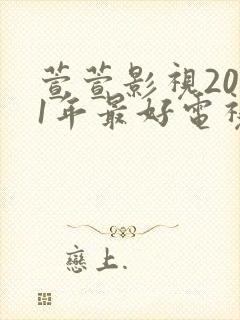 萱萱影視20
1年最好電視
戀上.